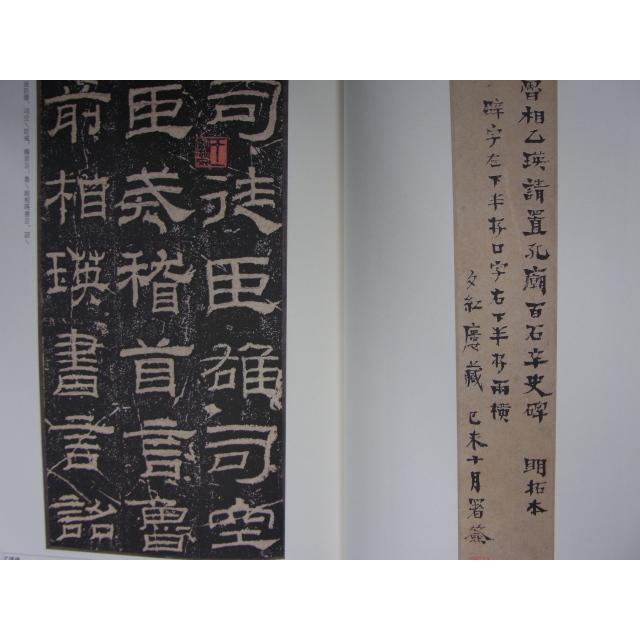 魯相乙瑛請置孔廟百石卒史碑 明拓本
辟字左下半存口字右下半存兩橫
夕紅廔藏 己未十月署簽
司徒臣雄司空
臣戒稽首言魯
前相瑛書言詔